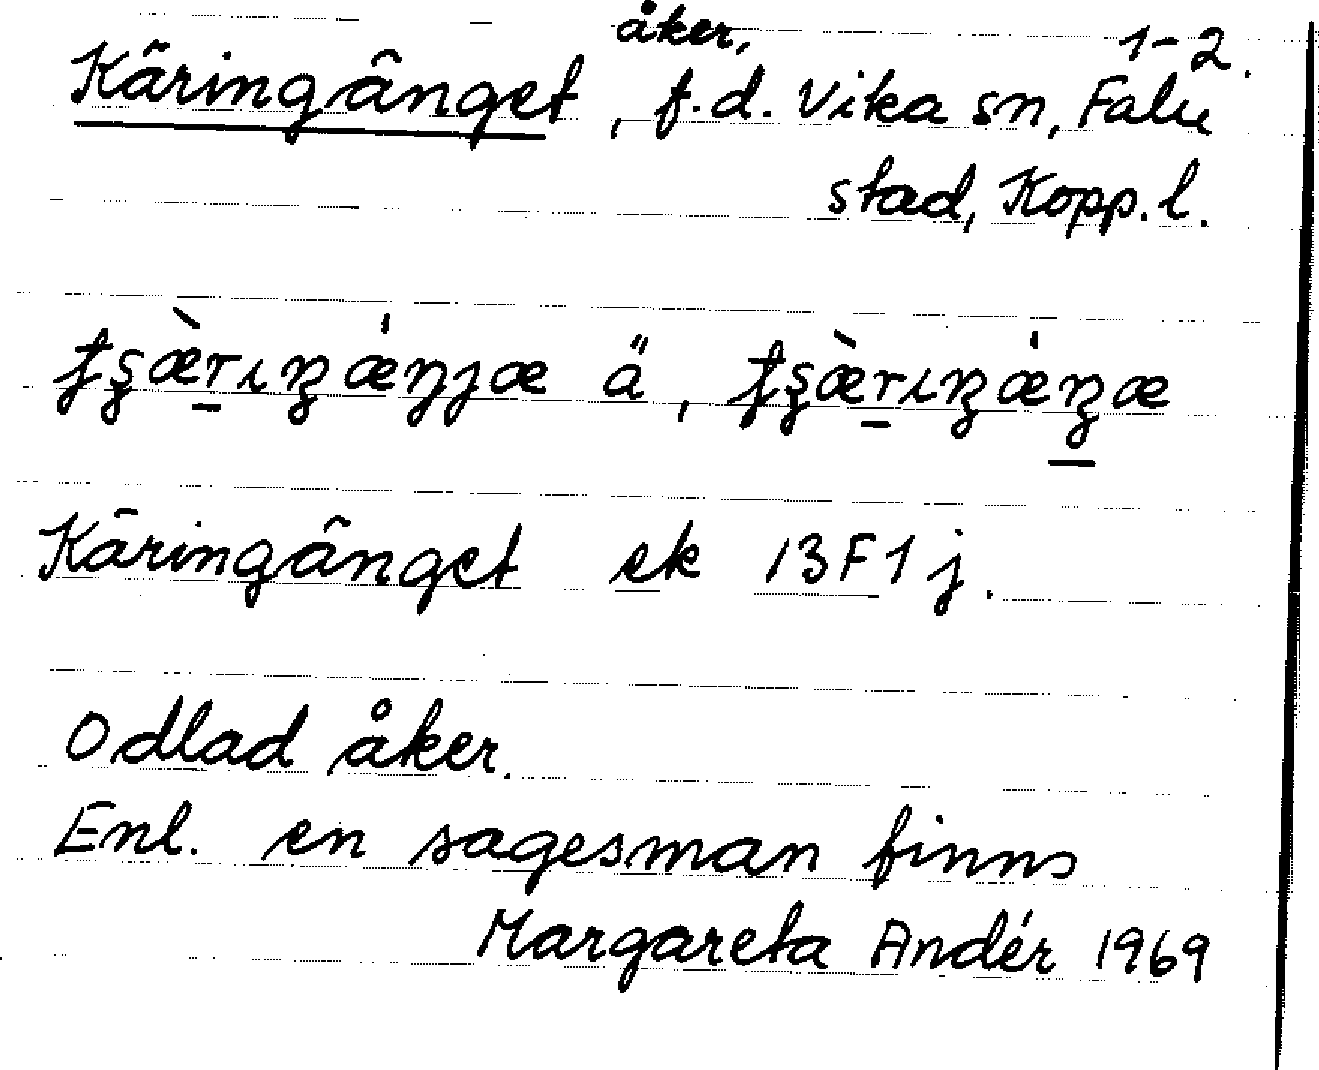 åker, 1-2.
Käringänget, f.d. Vika sn, Falu
stad, Kopp.l.
ä,
Käringänget ek 13F1j.
Odlad åker.
Enl. en sagesman finns
Margareta Andér 1969